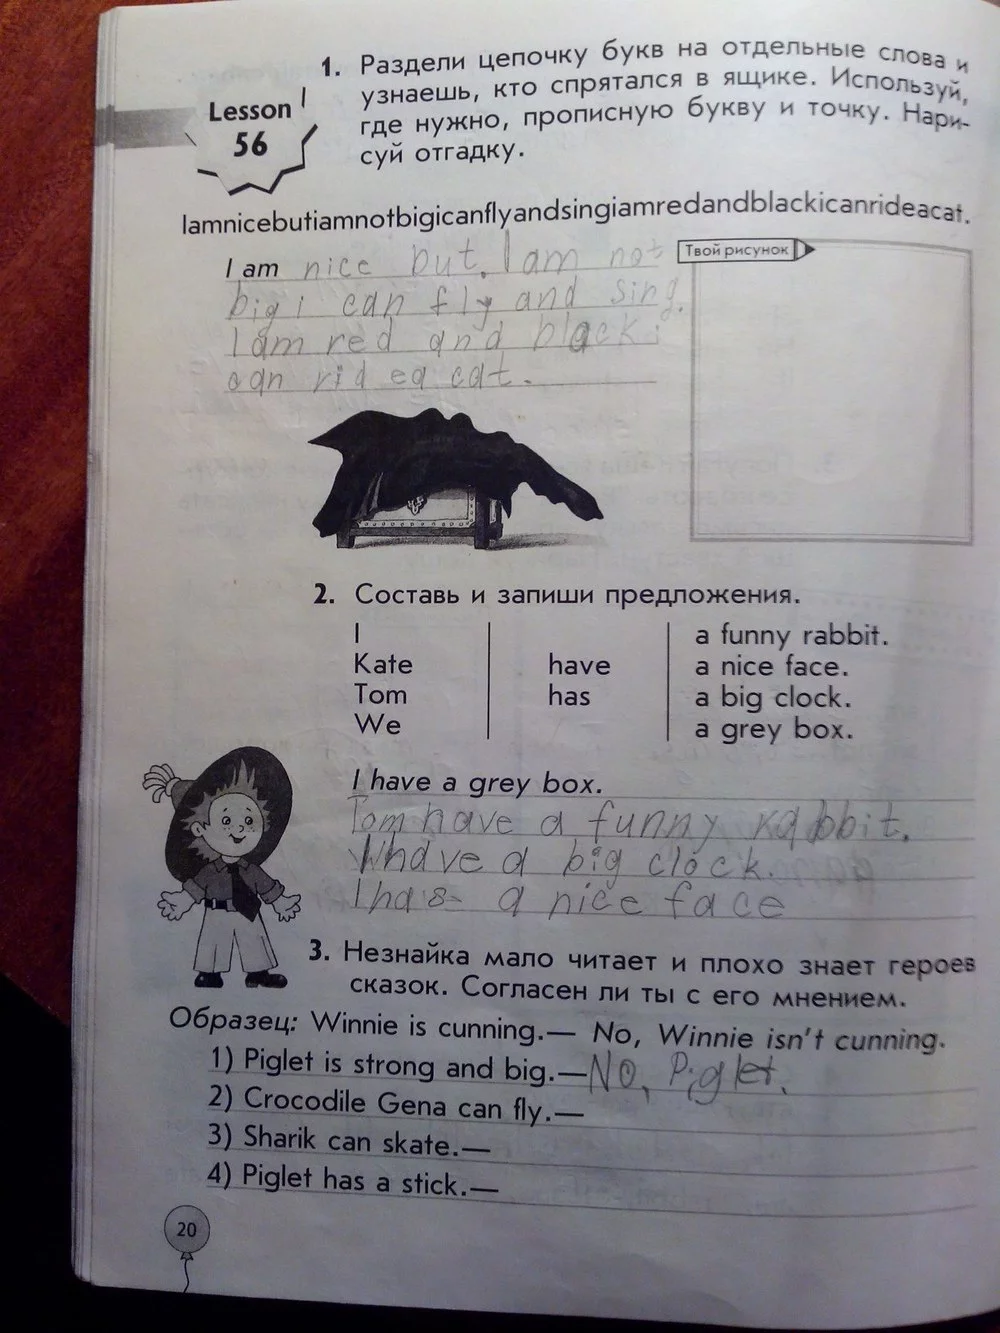 1. Раздели цепочку букв на отдельные слова и
узнаешь, кто спрятался в ящике. Используй,
где нужно, прописную букву и точку. Нари-
суй отгадку.
Lesson
56
Iamnicebutiamnotbigicanflyandsingiamredandblackicanrideacat.
I am nice but. I am not
big I can fly and sing.
I am red and black i
can rid ea cat.
Твой рисунок
2. Составь и запиши предложения.
I
Kate
Tom
We
have
has
a funny rabbit.
a nice face.
a big clock.
a grey box.
I have a grey box.
Tom have a funny rabbit.
have a big clock.
I has a nice face
3. Незнайка мало читает и плохо знает героев
сказок. Согласен ли ты с его мнением.
Образец: Winnie is cunning.— No, Winnie isn't cunning.
1) Piglet is strong and big.— No, Piglet.
2) Crocodile Gena can fly.—
3) Sharik can skate.—
4) Piglet has a stick.—
20